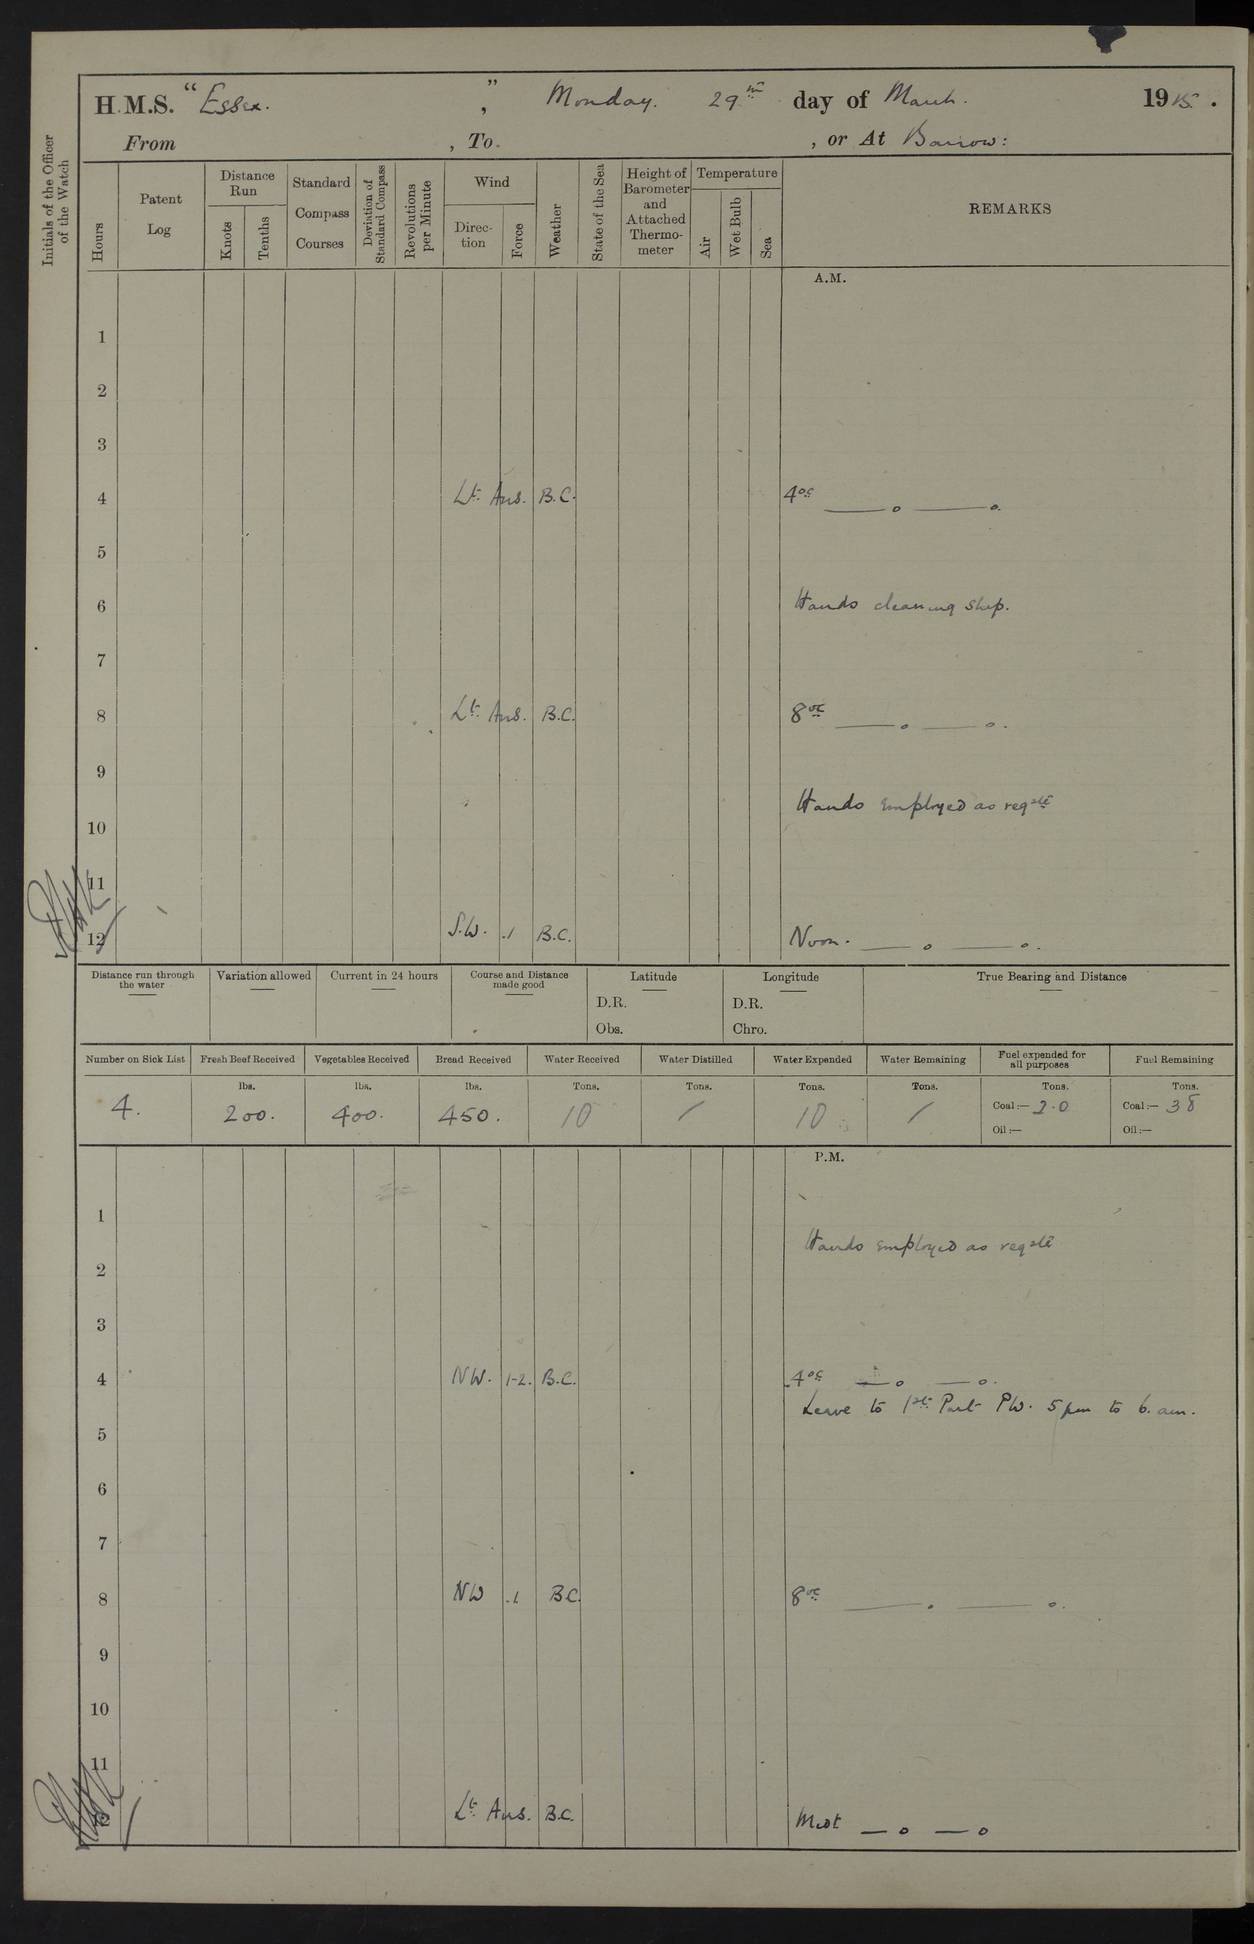 H.M.S. "Essex.", Monday. 29th day of March. 1915.
From , To. , or At Barrow:
Initials of the Officer of the Watch
Hours
Patent Log
Distance Run
Knots
Tenths
Standard Compass Courses
Deviation of Standard Compass
Revolutions per Minute
Wind
Direction
Force
Weather
State of the Sea
Height of Barometer and Attached Thermometer
Temperature
Air
Wet Bulb
Sea
REMARKS
A.M.
1
2
3
4 Lt. Airs. B.C. 4oc ——o——o.
5
6 Hands cleaning ship.
7
8 Lt. Airs. B.C. 8oc ——o——o.
9
Hands employed as reqste
10
11
12 S.W. .1 B.C. Noon. ——o——o.
Distance run through the water
Variation allowed
Current in 24 hours
Course and Distance made good
Latitude
D.R.
Obs.
Longitude
D.R.
Chro.
True Bearing and Distance
Number on Sick List Fresh Beef Received Vegetables Received Bread Received Water Received Water Distilled Water Expended Water Remaining Fuel expended for all purposes Fuel Remaining
lbs. lbs. lbs. Tons. Tons. Tons. Tons. Tons. Tons.
4. 200. 400. 450. 10 / 10 / Coal:— 20 Coal:— 38
Oil:— Oil:—
P.M.
1
Hands employed as reqste
2
3
4 NW. 1-2. B.C. 4oc —o—o.
Leave to 1st Part PW. 5pm to 6. am.
5
6
7
8 NW .1 B.C. 8oc ——o——o.
9
10
11
12 Lt. Airs. B.C. Midt —o—o